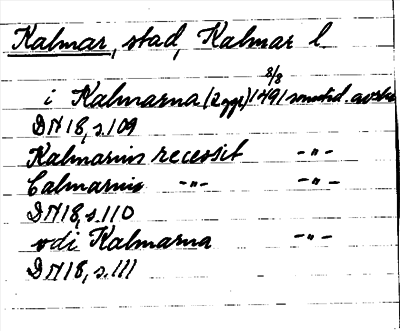 Kalmar, stad, Kalmar l.
i Kalmarna (2 ggr) 8/8 1491 samtid. avskr
DN 18, s. 109
Kalmarnis recessit -"-
Calmarnis -"- -"-
DN 18, s. 110
vdi Kalmarna -"-
DN 18, s. 111